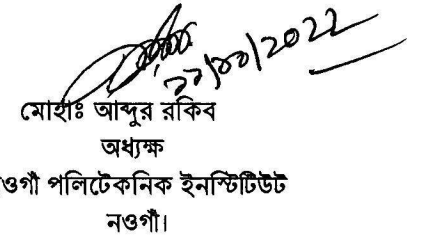 মোহাঃ আব্দুর রকিব
অধ্যক্ষ
ওগাঁ পলিটেকনিক ইনস্টিটিউট
নওগাঁ।